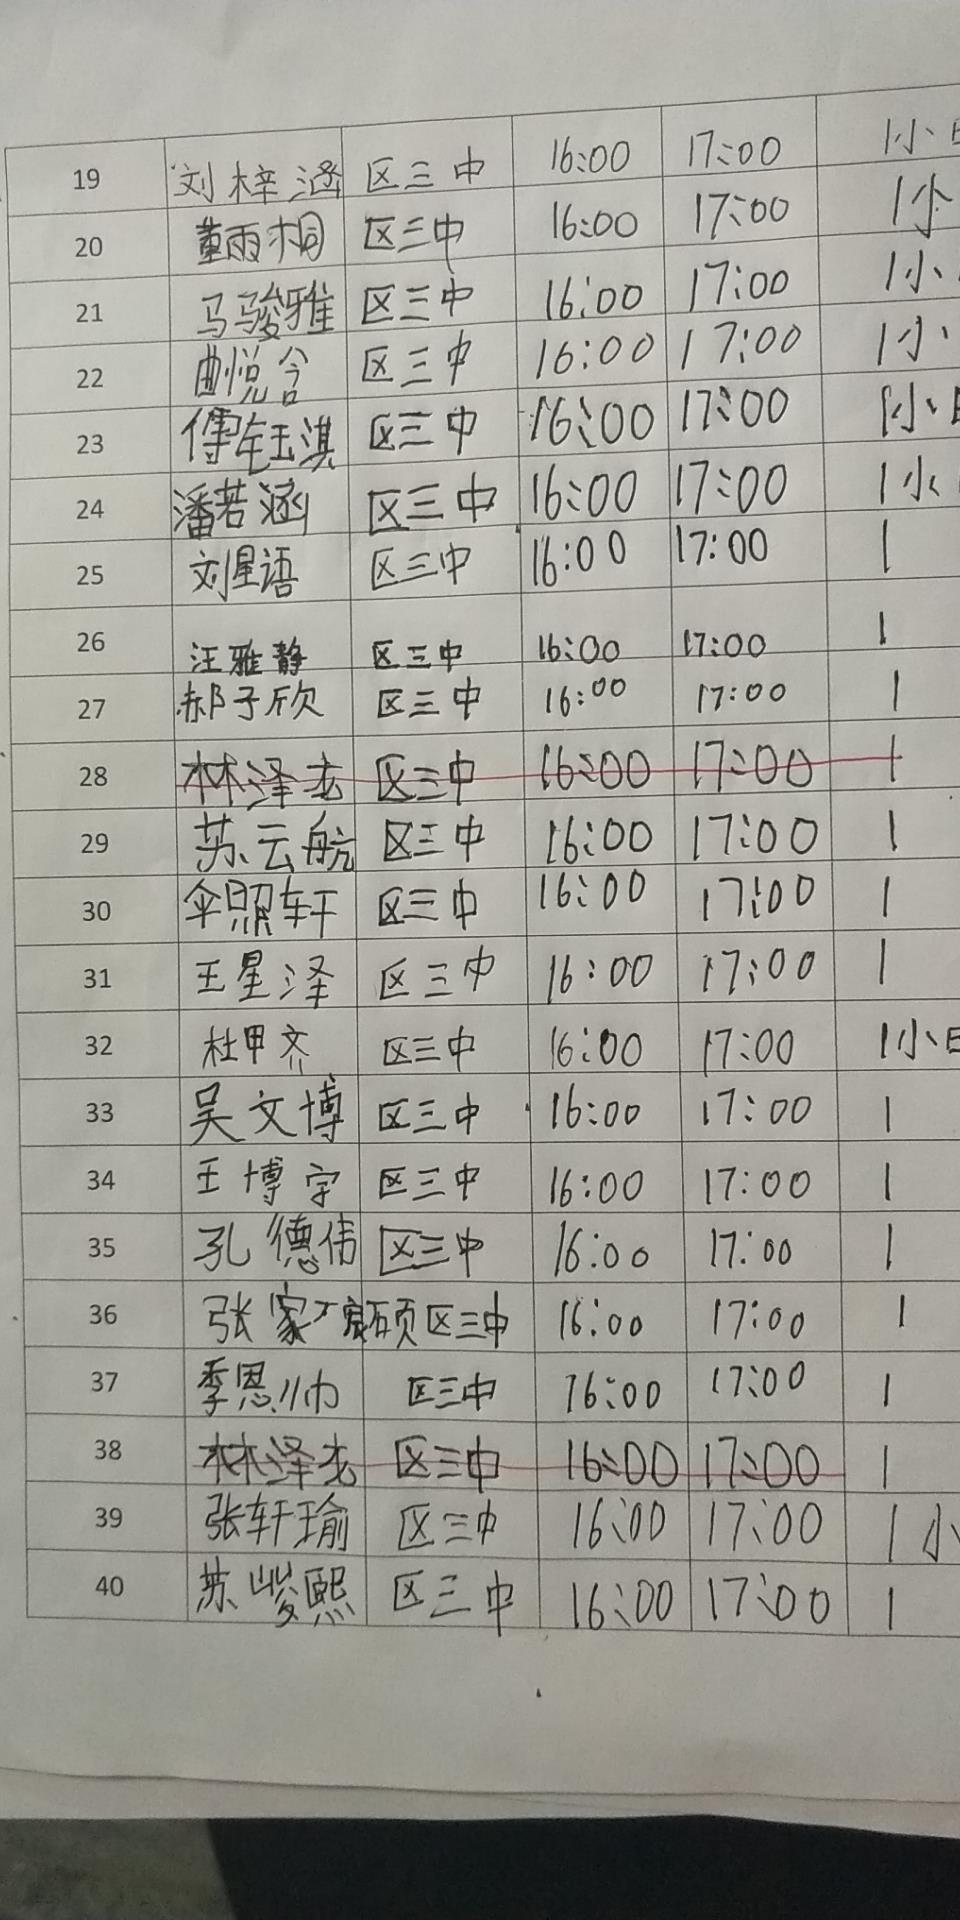 19 刘梓涵 区三中 16:00 17:00 1小
20 董雨桐 区三中 16:00 17:00 1小
21 马骏雅 区三中 16:00 17:00 1小
22 曲悦含 区三中 16:00 17:00 1小
23 傅钰淇 区三中 16:00 17:00 1小
24 潘若涵 区三中 16:00 17:00 1小
25 刘星语 区三中 16:00 17:00 1
26 汪雅静 区三中 16:00 17:00 1
27 郝子欣 区三中 16:00 17:00 1
28 林泽龙 区三中 16:00 17:00 1
29 苏云航 区三中 16:00 17:00 1
30 伞照轩 区三中 16:00 17:00 1
31 王星泽 区三中 16:00 17:00 1
32 杜甲齐 区三中 16:00 17:00 1小
33 吴文博 区三中 16:00 17:00 1
34 王博宇 区三中 16:00 17:00 1
35 孔德伟 区三中 16:00 17:00 1
36 张家硕 区三中 16:00 17:00 1
37 季恩帅 区三中 16:00 17:00 1
38 林泽龙 区三中 16:00 17:00 1
39 张轩瑜 区三中 16:00 17:00 1小
40 苏峻熙 区三中 16:00 17:00 1